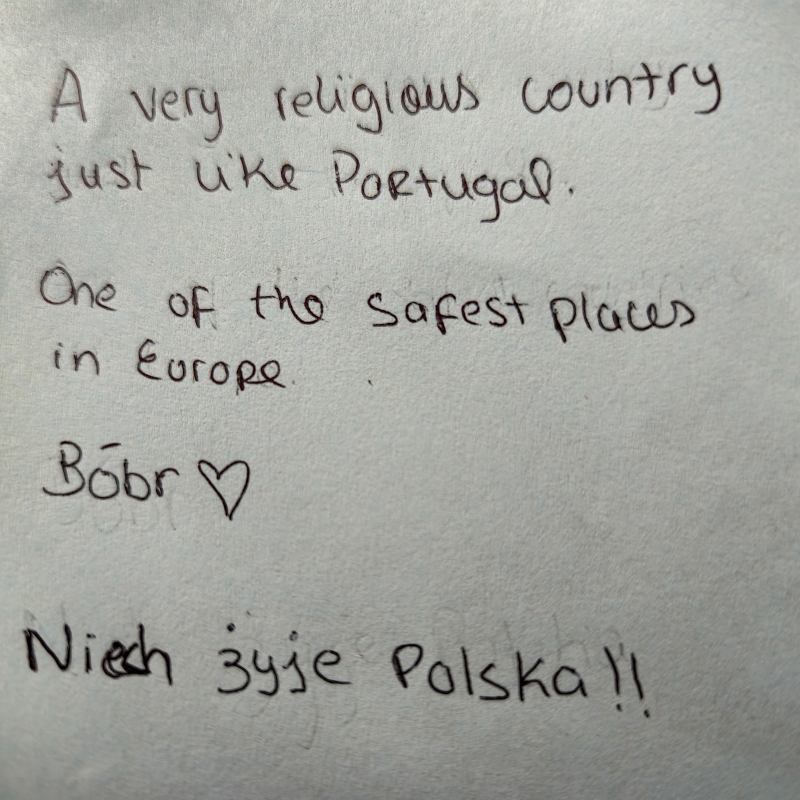 A very religious country
just like Portugal.
One of the safest places
in Europe.
Bōbr ♡
Niech żyje Polska!!